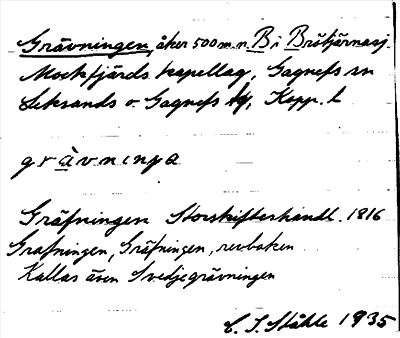 Grävningen, åker 500 m. n. B i Brötjärnasj.
Mockfjärds kapellag, Gagnefs sn
Leksands o. Gagnefs tg, Kopp. l
grävninͅa
Gräfningen Storskifteshandl. 1816
Grafningen, Gräfningen, revboken
Kallas även Svedjegrävningen
C. I. Ståhle 1935